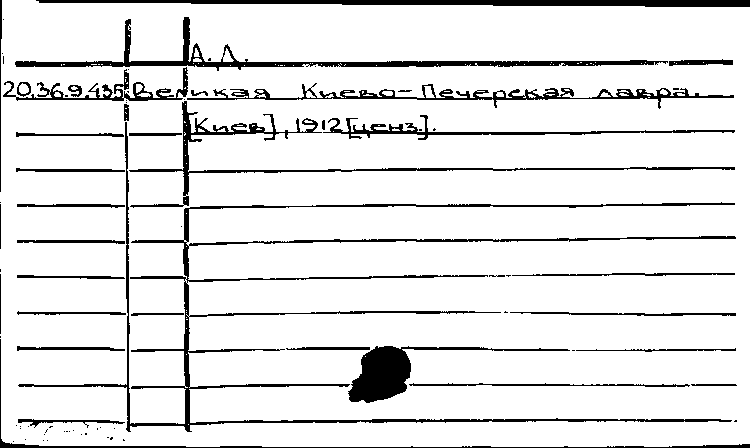 А. Д.
20.36.9.435 Великая Киево-Печерская лавра.
[Киев], 1912[ценз.].